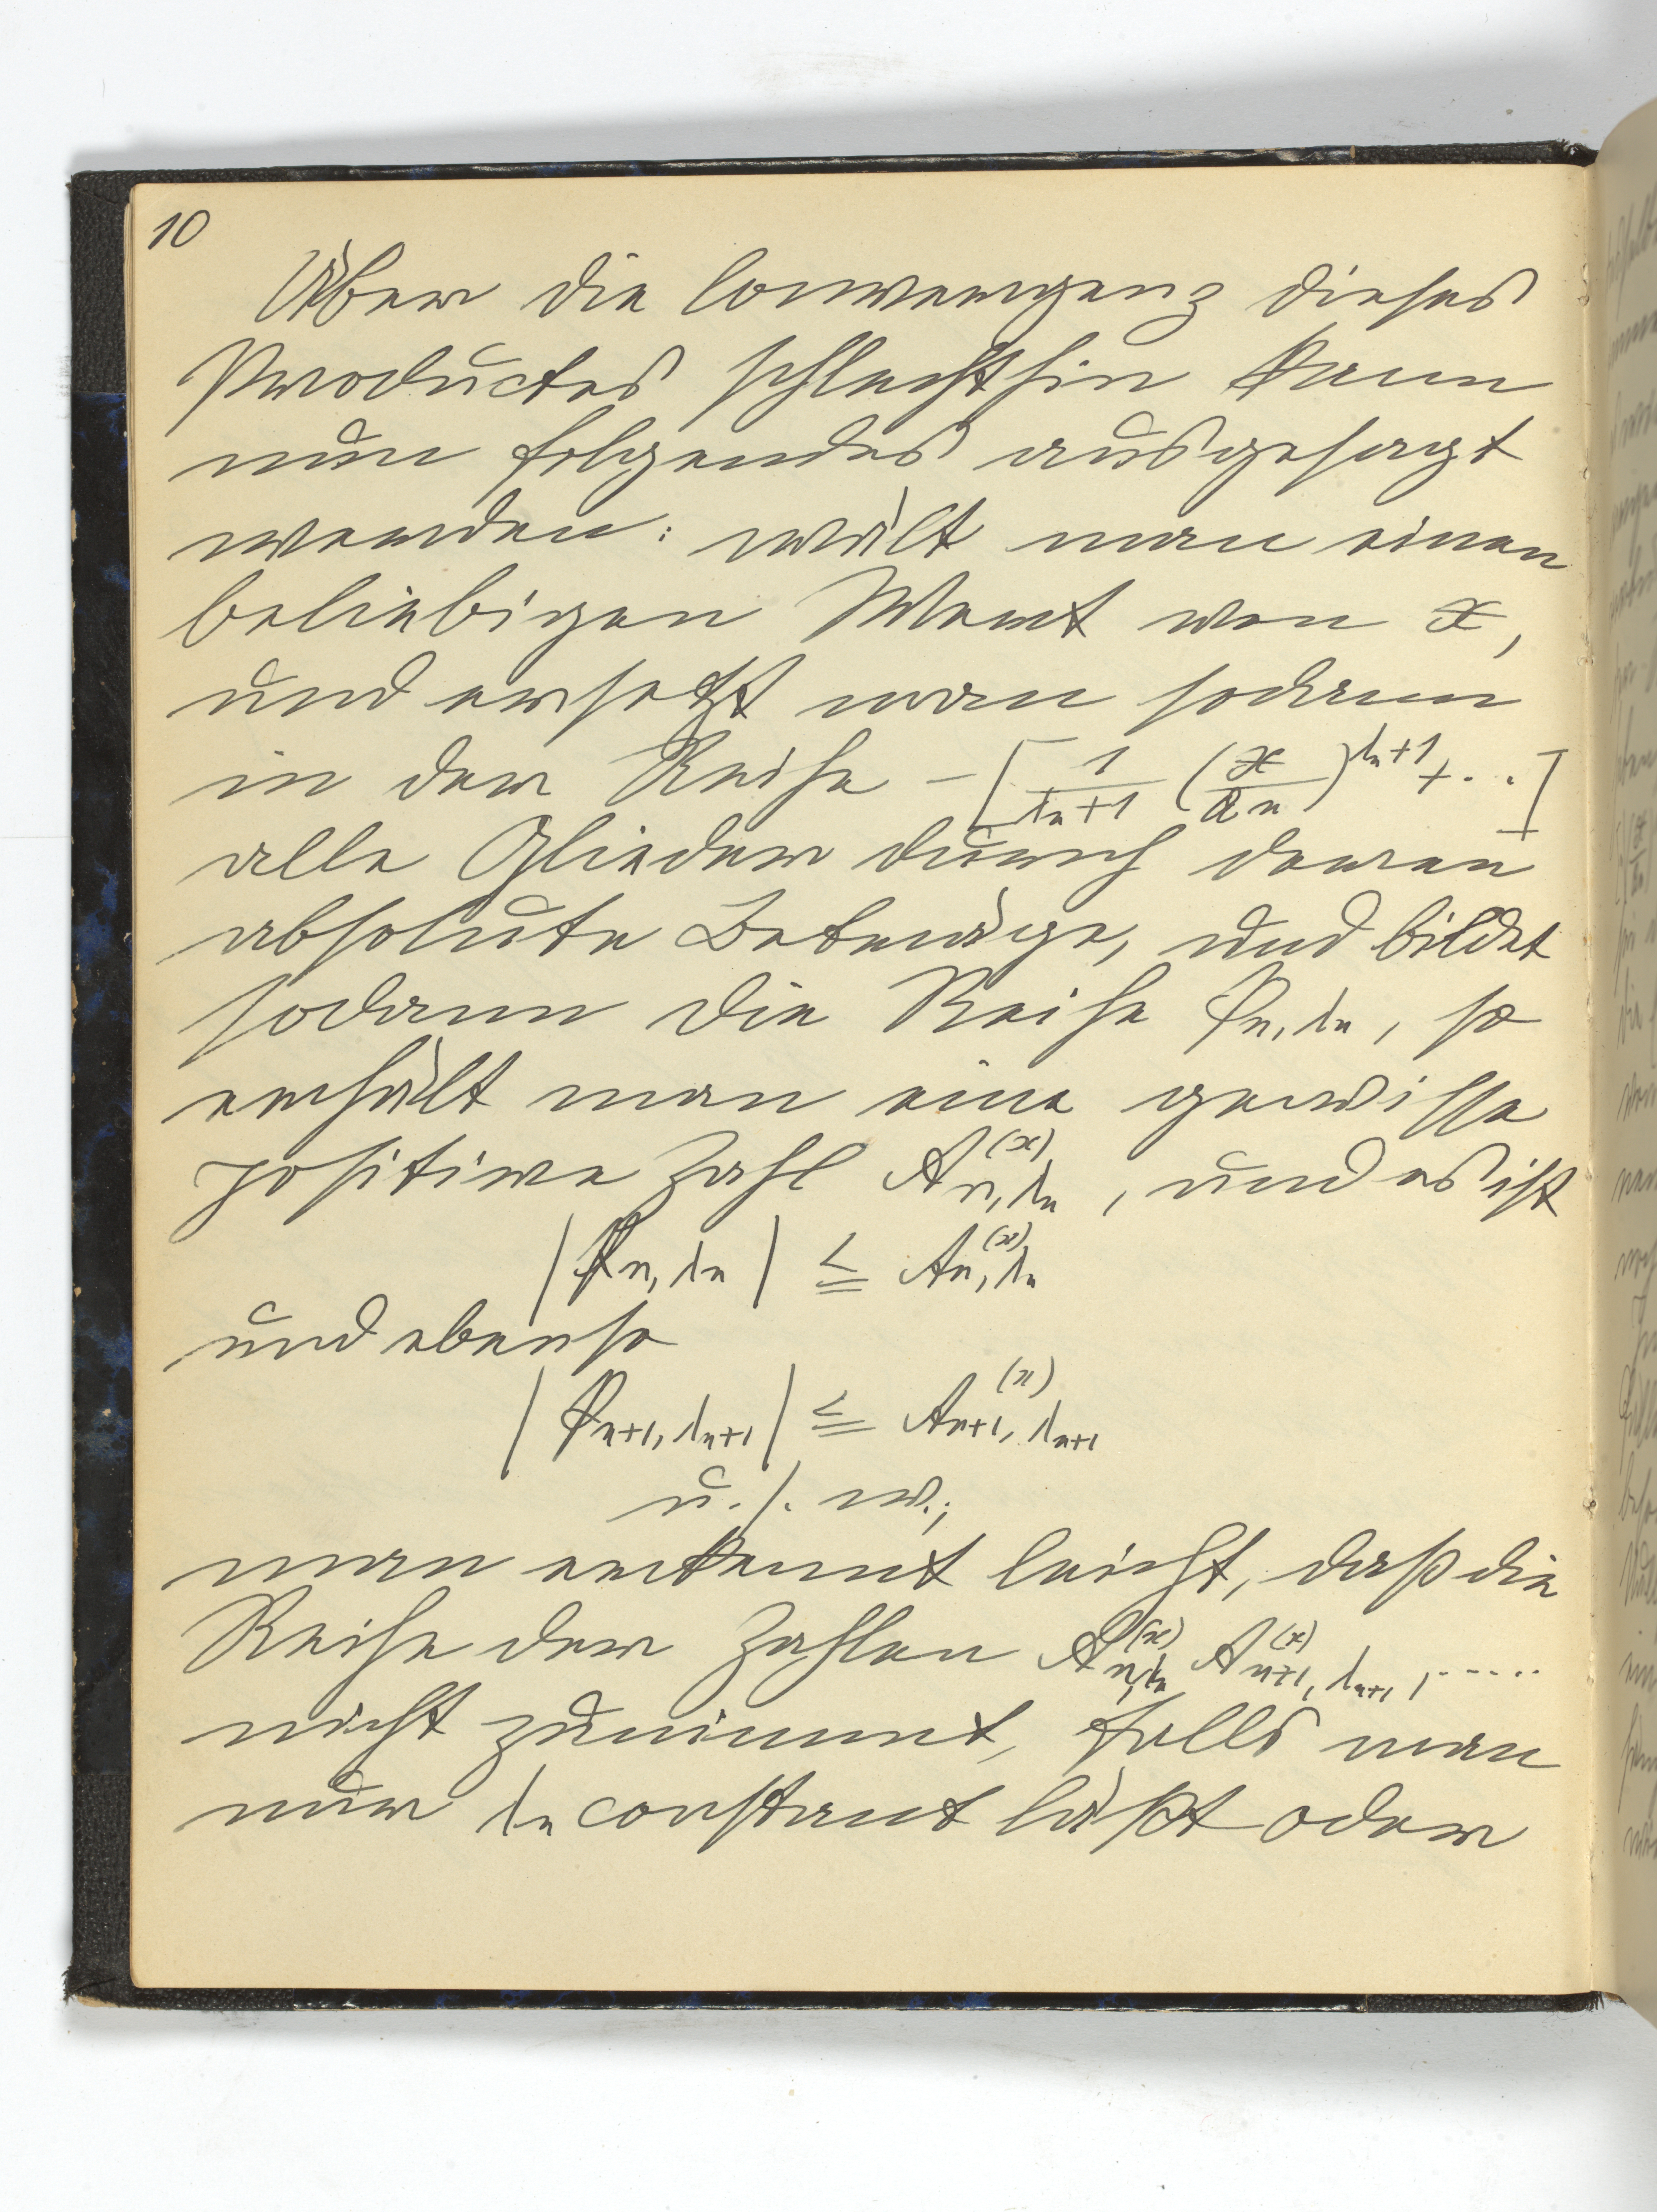 10
Über die Convergenz dieses
Productes schlechthin kann
nun folgendes ausgesagt
werden: wält man einen
beliebigen Wert von x,
und ersetzt man sodann
in der Reihe -[1/(λn+1) (x/an)^(λn+1) + ...]
alle Glieder durch deren
absolute Beträge, und bildet
sodann die Reihe φn,λn, so
erhält man eine gewisse
positive Zahl A(x)n,λn, und es ist
|φn,λn| ≦ A(x)n,λn
und ebenso
|φn+1,λn+1| ≦ A(x)n+1,λn+1
u. s. w.;
man erkennt leicht, daß die
Reihe der Zahlen A(x)n,λn A(x)n+1,λn+1, .....
nicht zunimmt, falls man
nur λn constant läßt oder